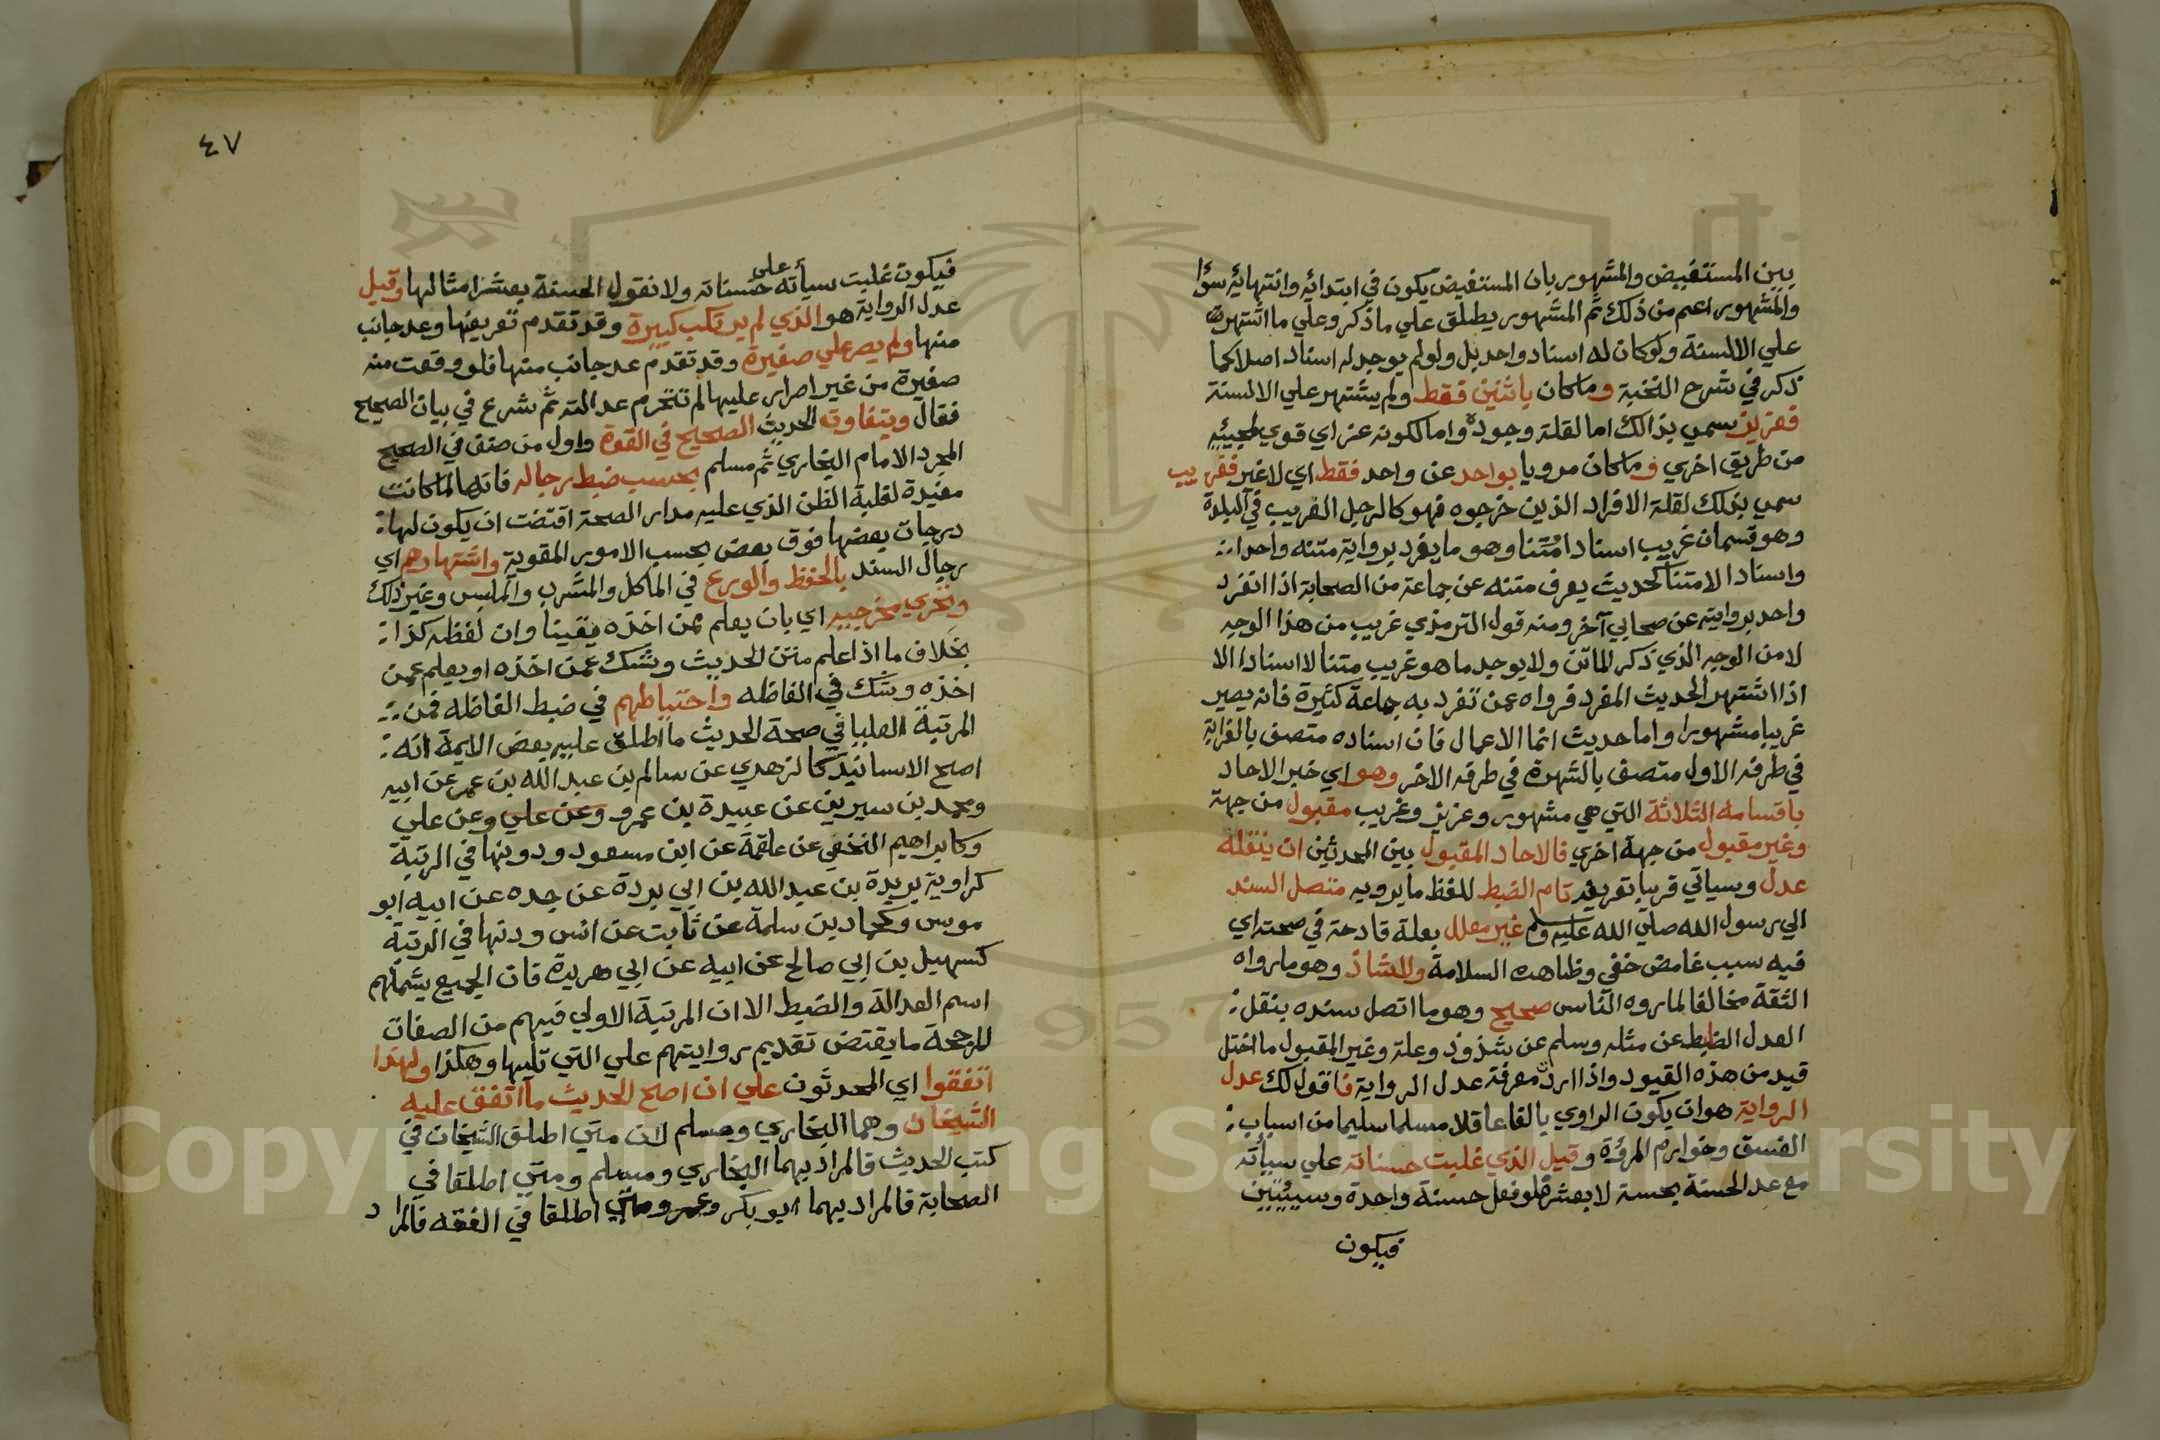 بين المستفيض والمشهور بان المستفيض يكون في ابتدائه وانتهائه سوٓا
والمشهور اعم من ذلك ثم المشهور يطلق علي ما ذكر وعلي ما اشتهر
علي الالسنة ولو كان له اسناد واحد بل ولو لم يوجد له اسناد اصلا كما
ذكر في شرح النخبة وما كان باثنين فقط ولم يشتهر علي الالسنة
فعزيز سمي بذالك اما لقلة وجوده واما لكونه عز اي قوي لمجيئه
من طريق اخري وما كان مرويا بواحد عن واحد فقط اي لا غير فغريب
سمي بذلك لقلة الافراد الذين خرجوه فهو كالرجل الغريب في البلدة
وهو قسمان غريب اسنادا متنا وهو ما يفرد برواية متنه واحد
واسنادا لا متنا كحديث يعرف متنه عن جماعة من الصحابة اذا انفرد
واحد بروايته عن صحابي آخر ومنه قول الترمذي غريب من هذا الوجه
لا من الوجه الذي ذكر الماتن ولا يوجد ما هو غريب متنا لا اسنادا الا
اذا اشتهر الحديث المفرد فرواه عمن تفرد به جماعة كثيرة فانه يصير
غريبا مشهورا واما حديث انما الاعمال فان اسناده متصف بالغرابة
في طرفه الاول متصف بالشهرة في طرفه الاخر وهو اي خبر الاحاد
باقسامه الثلاثة التي هي مشهور وعزيز وغريب مقبول من جهة
وغير مقبول من جهة اخري فالاحاد المقبول بين المحدثين ان ينقله
عدل وسياتي قريبا تعريفه تام الضبط للفظ ما يرويه متصل السند
الي رسول الله صلي الله عليه وسلم غير معلل بعلة قادحة في صحته اي
فيه سبب غامض خفي وظاهره السلامة ولا شاذ وهو ما رواه
الثقة مخالفا لما روه الناس صحيح وهو ما اتصل سنده بنقل
العدل الضابط عن مثله وسلم عن شذوذ وعلة وغير المقبول ما اختل
قيد من هذه القيود واذا اردت معرفة عدل الرواية فاقول لك عدل
الرواية هو ان يكون الراوي بالغا عاقلا مسلما سليما من اسباب
الفسق وخوارم المروة وقيل الذي غلبت حسناته علي سيأته
مع عد الحسنة بحسنة لا بعشر فلو فعل حسنة واحدة وسيئتين
فيكون
٤٧
فيكون غلبت سيأته على حسناته ولا نقول الحسنة بعشر امثالها وقيل
عدل الرواية هو الذي لم يرتكب كبيرة وقد تقدم تعريفها وعد جانب
منها ولم يصر علي صغيرة وقد تقدم عد جانب منها فلو وقعت منه
صغيرة من غير اصرار عليها لم تنخرم عدالته ثم شرع في بيان الصحيح
فقال ويتفاوت الحديث الصحيح في القوة واول من صنف في الصحيح
المجرد الامام البخاري ثم مسلم بحسب ضبط رجاله فانه لما كانت
مفيدة لغلبة الظن الذي عليه مدار الصحة اقتضت ان يكون لها
درجات بعضها فوق بعض بحسب الامور المقوية واشتهارهم اي
رجال السند بالحفظ والورع في الماكل والمشرب والملبس وغير ذلك
وتحري مخرجيه اي بان يعلم ممن اخذه يقينا وان لفظه كذا
بخلاف ما اذا علم متن الحديث وشك عمن اخذه او يعلم عمن
اخذه ويشك في الفاظه واحتياطهم في ضبط الفاظه فمن
المرتبة العليا في صحة الحديث ما اطلق عليه بعض الايمة انه
اصح الاسانيد كالزهدي عن سالم بن عبد الله بن عمر عن ابيه
ومحمد بن سيرين عن عبيدة بن عمرو وعن علي وعن علي
وكابراهيم النخعي عن علقمة عن ابن مسعود ودونها في الرتبة
كراوية بريدة بن عبد الله بن ابي بردة عن جده عن ابيه ابو
موسى وكحماد بن سلمة عن ثابت عن انس ودنها في الرتبة
كسهيل بن ابي صالح عن ابيه عن ابي هريرة فان الجميع يشملهم
اسم العدالة والضبط الا ان المرتبة الاولي فيهم من الصفات
المرجحة ما يقتض تقديم روايتهم علي التي تليها وهكذا ولهذا
اتفقوا اي المحدثون علي ان اصح الحديث ما اتفق عليه
الشيخان وهما البخاري ومسلم لان متي اطلق الشيخان في
كتب الحديث فالمراد بهما البخاري ومسلم ومتي اطلقا في
الصحابة فالمراد بهما ابو بكر وعمر ومتي اطلقا في الفقه فالمراد
Copyright © King Saud University
1957